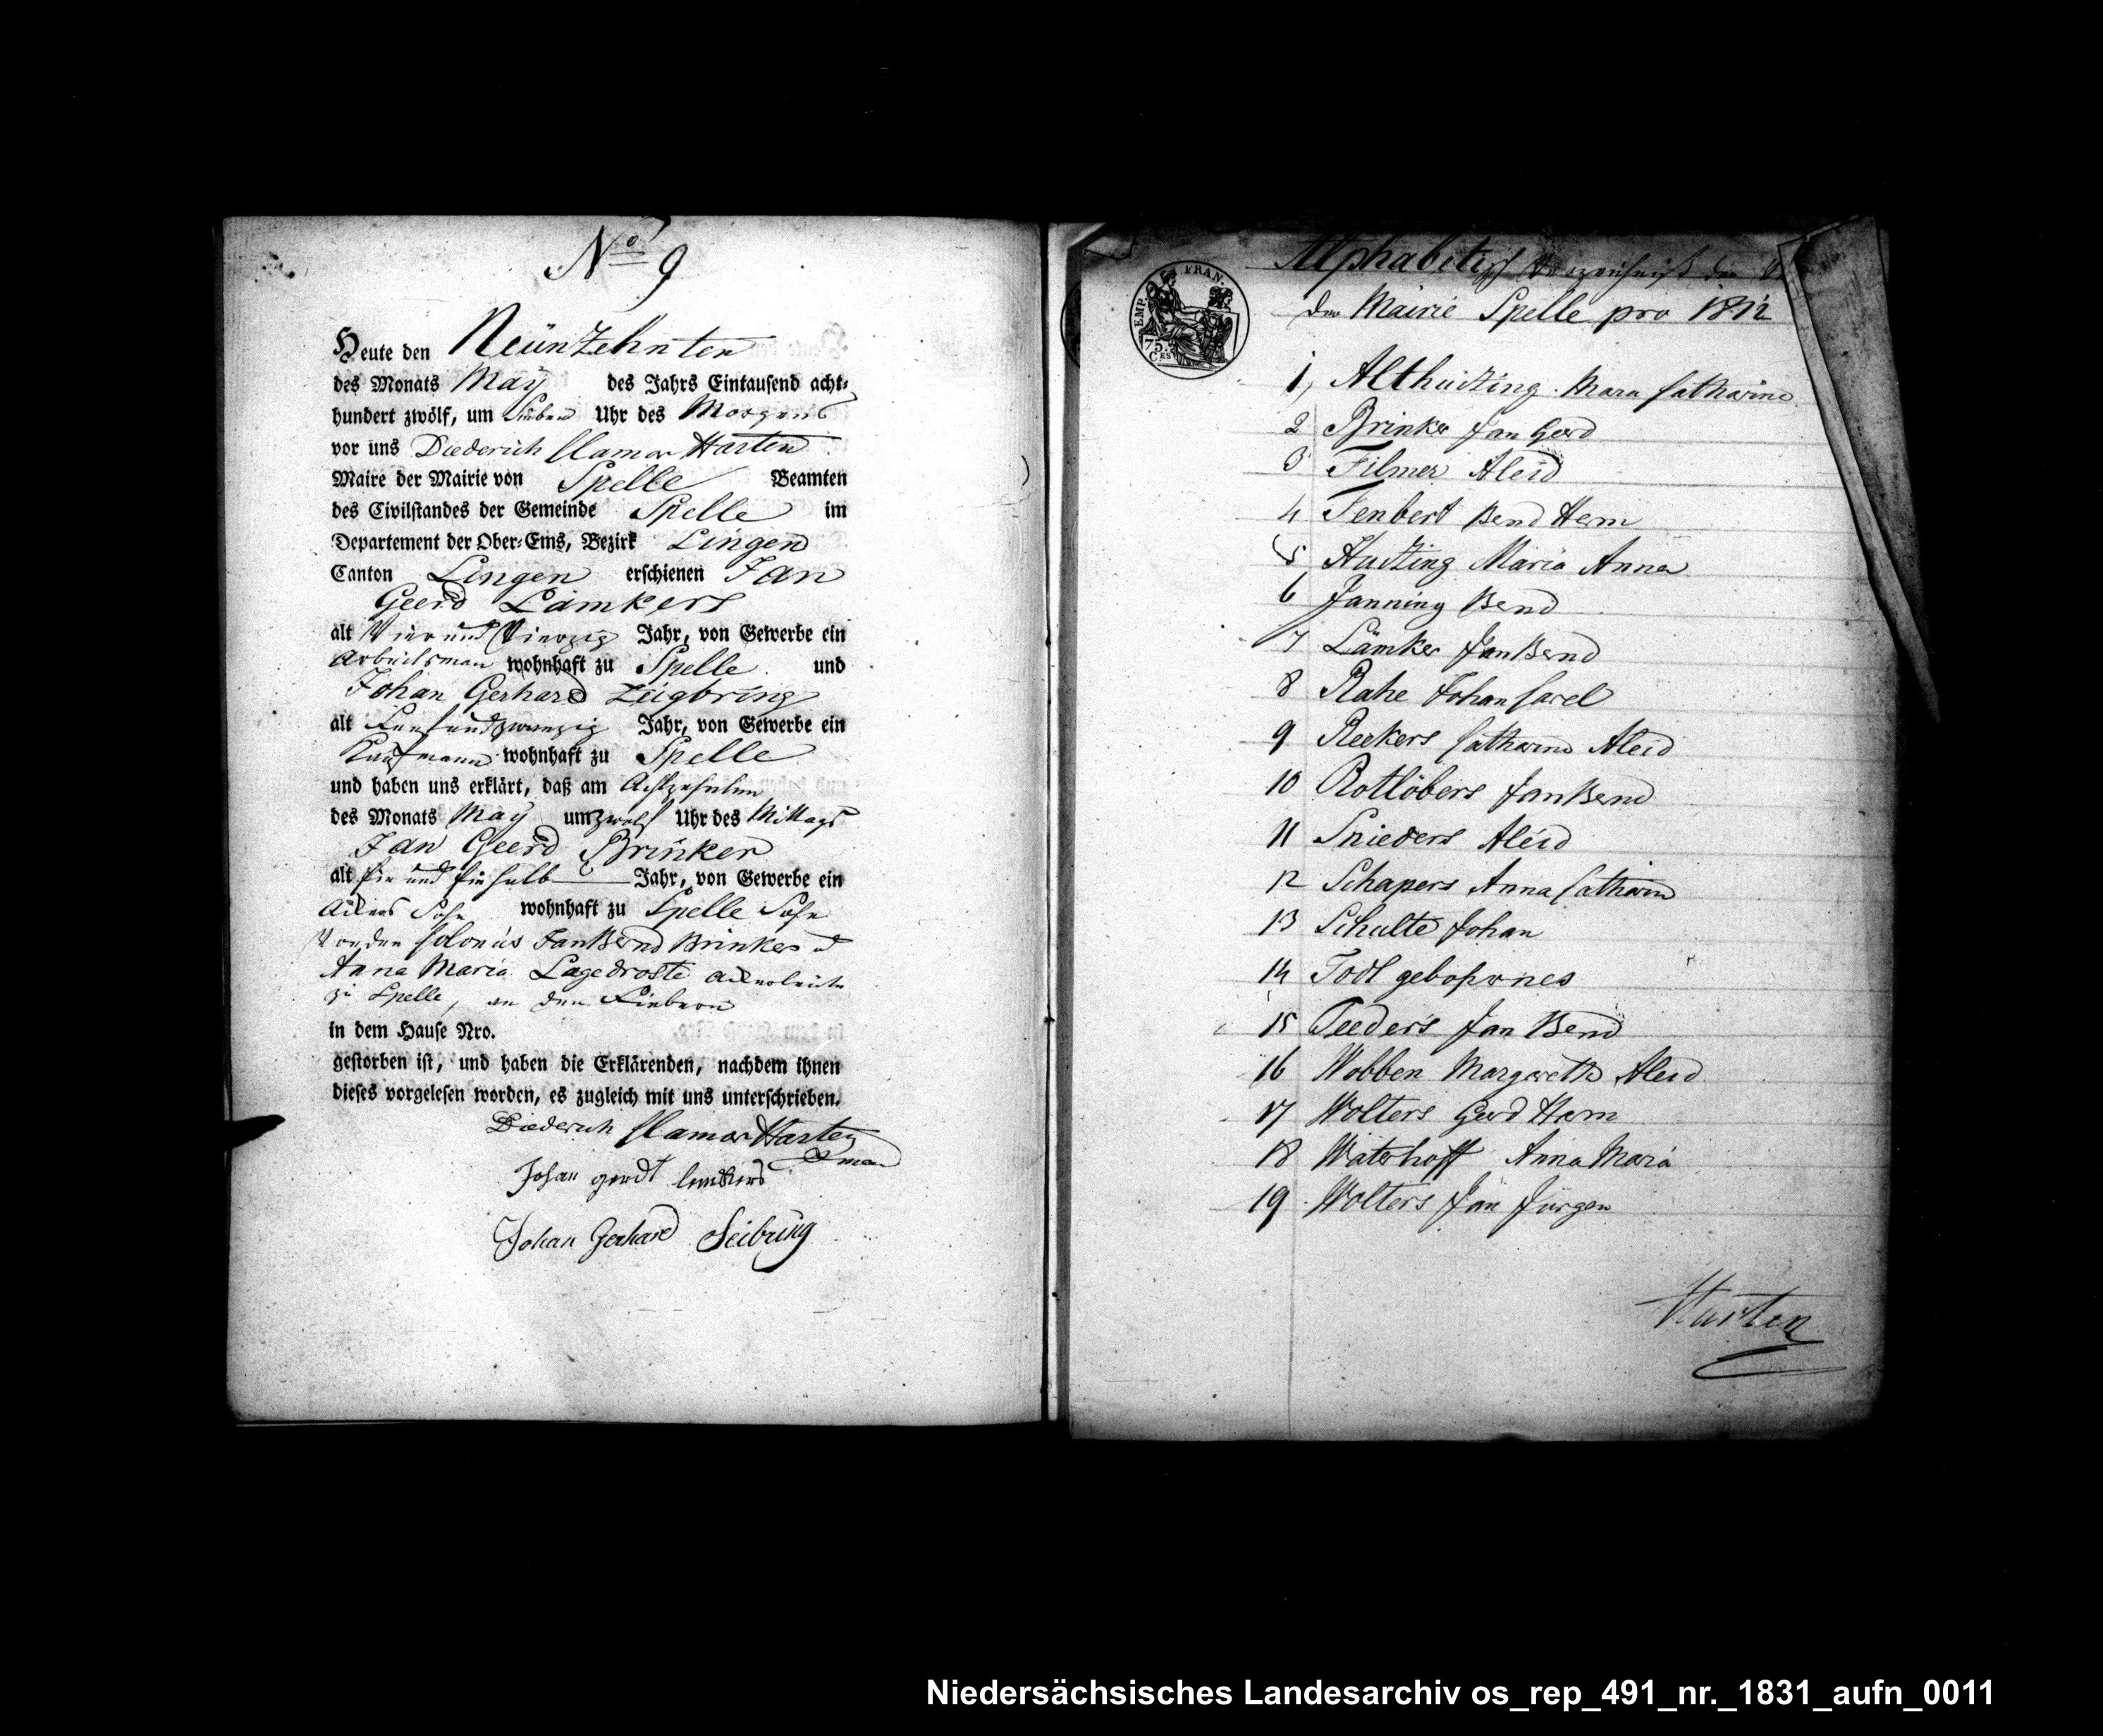 No 9
Heute den Neünzehnten
des Monats May des Jahrs Eintausend acht-
hundert zwölf, um Sieben Uhr des Morgens
vor uns Diederich Clamor Harten
Maire der Mairie von Spelle Beamten
des Civilstandes der Gemeinde Spelle im
Departement der Ober-Ems, Bezirk Lingen
Canton Lingen erschienen Jan
Geerd Lämkers
alt Vier und Vierzig Jahr, von Gewerbe ein
Arbeitsman wohnhaft zu Spelle und
Johan Gerhard Zeigbring
alt Funfundzwanzig Jahr, von Gewerbe ein
Kaufmann wohnhaft zu Spelle
und haben uns erklärt, daß am Achtzehnten
des Monats May um zwolf Uhr des Mittags
Jan Geerd Brinker
alt ein und ein halb Jahr, von Gewerbe ein
Ackers Sohn wohnhaft zu Spelle Sohn
Von den Colonus Jan Bernd Brinker
Anna Maria Lagedroste Ackerleute
zu Spelle, an den Fiebern
in dem Hause Nro.
gestorben ist, und haben die Erklärenden, nachdem ihnen
dieses vorgelesen worden, es zugleich mit uns unterschrieben.
Diederich Clamor Harten
Johan gerdt lemkers
Johan Gerhard Seibring
EMP. FRAN.
75. C.ES
Alphabetisch Verzeichniß der
der Mairie Spelle pro 1812
1, Althüsing Mara Catharine
2 Brinker Jan Gerd
3 Filmer Aleid
4 Fenbert Bernd Herm
5 Husing Maria Anna
6 Janning Bernd
7 Lämker Jan Bernd
8 Rahe Johan Carel
9 Reekers Catharine Aleid
10 Rotlöbers Jan Bernd
11 Snieders Aleid
12 Schapers Anna Catharin
13 Schulte Johan
14 Todt gebohrnes
15 Teeders Jan Bernd
16 Wobben Margareth Aleid
17 Wolters Gerd Herm
18 Waterhoff Anna Maria
19 Wolters Jan Jürgen
Harten
Niedersächsisches Landesarchiv os_rep_491_nr._1831_aufn_0011